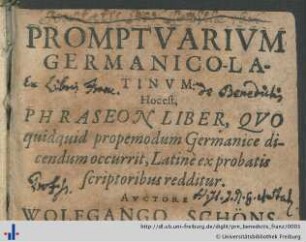 PROMPTVARIVM
GERMANICO-LA-
Ex Libris Franc. TINVM: de Benedictis
Hoc est,
PHRASEON LIBER, QVO
quidquid propemodum Germanice di-
cendum occurrit, Latine ex probatis
scriptoribus redditur.
AVCTORE
WOLFGANGO SCHÖNS
http://dl.ub.uni-freiburg.de/diglit/prm_benedictis_franz/0001
© Universitätsbibliothek Freiburg